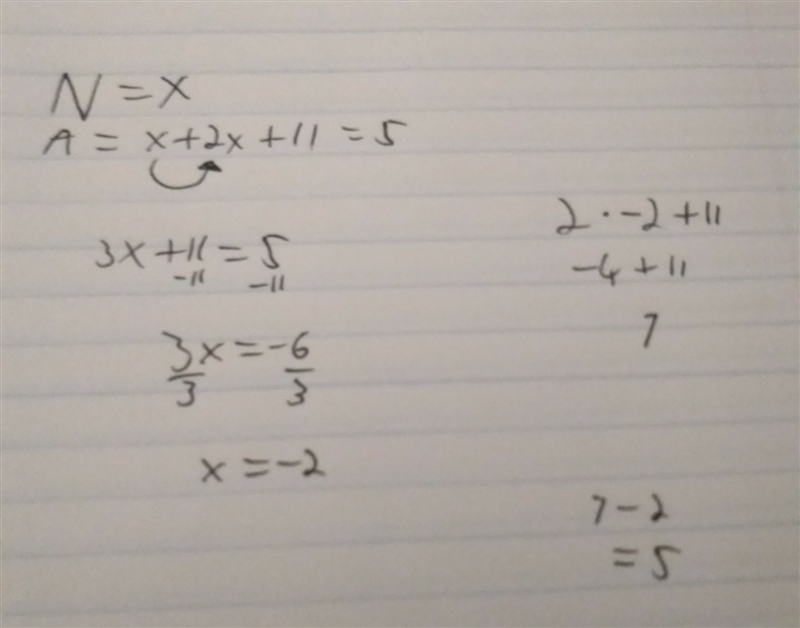 N = x
A = x + 2x + 11 = 5
3x + 11 = 5
-11 -11
3x = -6
3 3
x = -2
2 · -2 + 11
-4 + 11
7
7 - 2
= 5